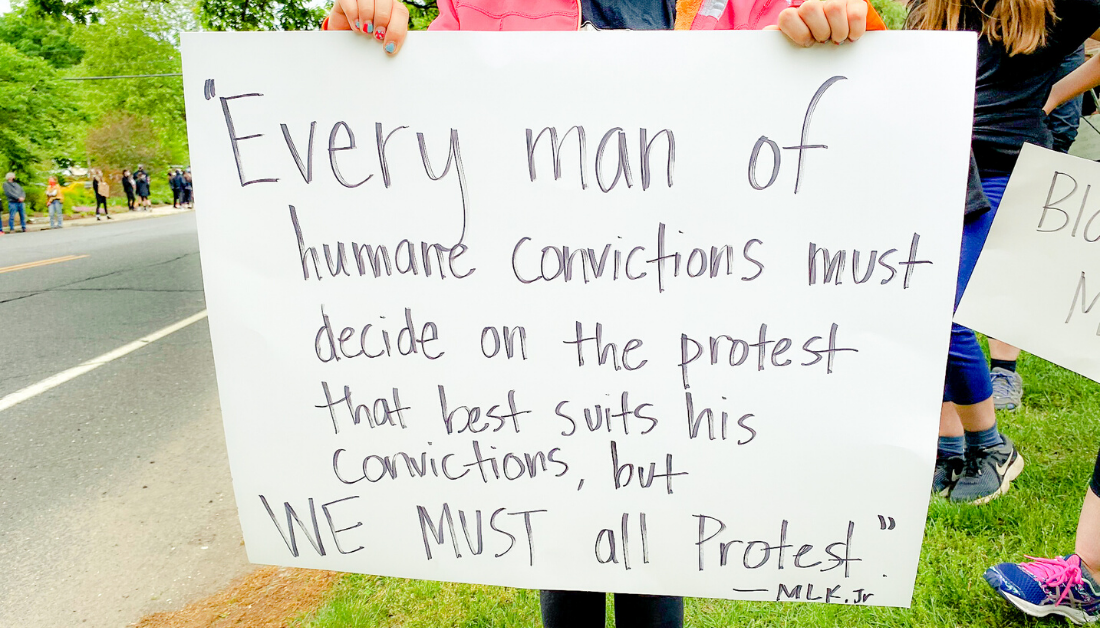 "Every man of
humane convictions must
decide on the protest
that best suits his
convictions, but
WE MUST all Protest."
—MLK.Jr